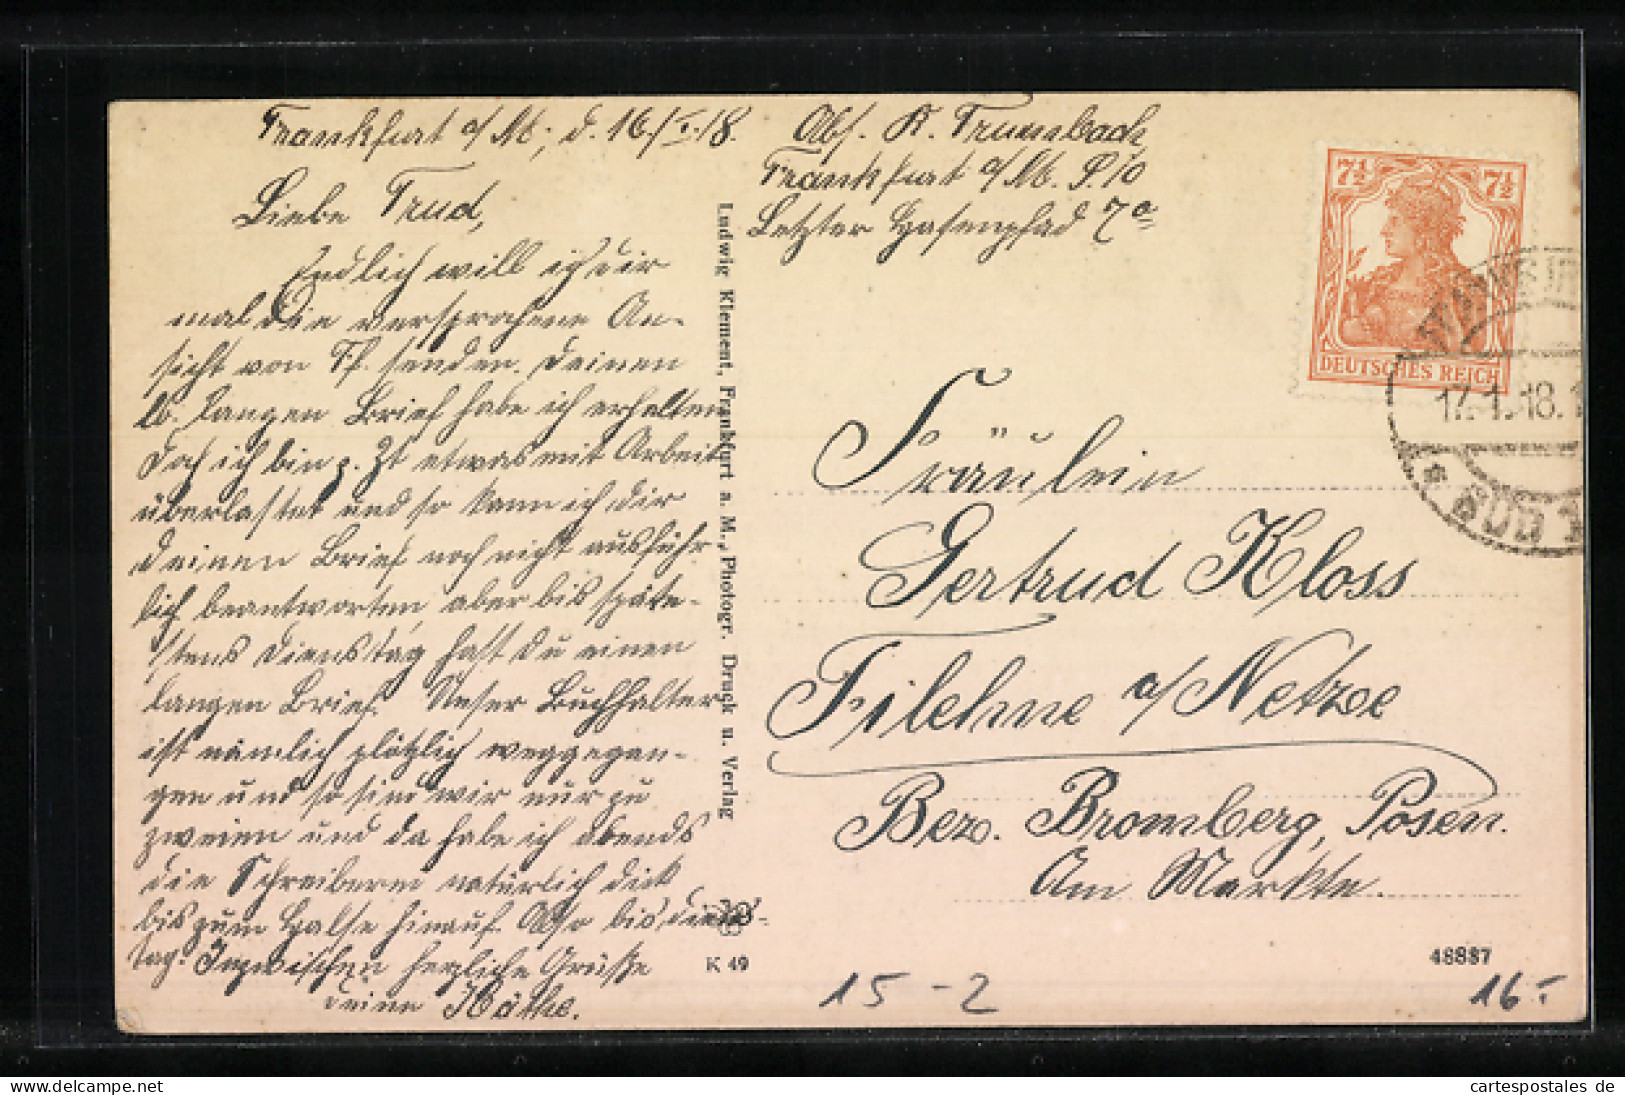 Frankfurt a/M., d. 16./I.18.
Liebe Trud,
Endlich will ich dir
mal die versprochene An-
sicht von Ff. senden. Deinen
lb. langen Brief habe ich erhalten
doch ich bin z. Zt etwas mit Arbeit
überlastet und so kann ich dir
deinen Brief noch nicht ausführ-
lich beantworten, aber bis späte-
stens Dienstag hast du einen
langen Brief. Unser Buchhalter
ist nämlich plötzlich weggegan-
gen und so sind wir nur zu
zweien und da habe ich abends
die Schreiberei natürlich dick
bis zum Halse hinauf. Also bis Diens-
tag. Inzwischen herzliche Grüße
deine Käthe.
Ludwig Klement, Frankfurt a. M., Photogr. Druck u. Verlag
K 49
Abs. K. Trumbach,
Frankfurt a/M. S.10
Letzter Hasenpfad 7a
7½ 7½
DEUTSCHES REICH
FRANKFURT
17.1.18.1
* SÜD
Fräulein
Gertrud Kloss
Filehne a/Netze
Bez. Bromberg, Posen.
Am Markte.
48887
15-2
16.-
cartespostales de